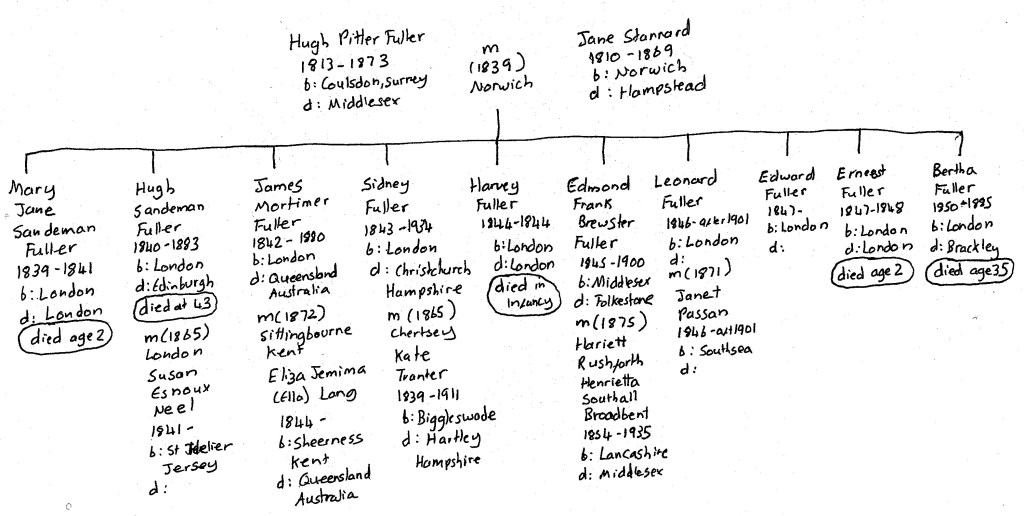 Hugh Pitter Fuller
1813-1873
b: Coulsdon, Surrey
d: Middlesex
m
(1839)
Norwich
Jane Stannard
1810-1869
b: Norwich
d: Hampstead
Mary
Jane
Sandeman
Fuller
1839-1841
b: London
d: London
died age 2
Hugh
Sandeman
Fuller
1840-1883
b: London
d: Edinburgh
died at 43
m (1865)
London
Susan
Esnoux
Neel
1841-
b: St Helier
Jersey
d:
James
Mortimer
Fuller
1842-1880
b: London
d: Queensland
Australia
m (1872)
Sittingbourne
Kent
Eliza Jemima
(Ella) Long
1844-
b: Sheerness
Kent
d: Queensland
Australia
Sidney
Fuller
1843-1934
b: London
d: Christchurch
Hampshire
m (1865)
Chertsey
Kate
Tranter
1839-1911
b: Biggleswade
d: Hartley
Hampshire
Harvey
Fuller
1844-1844
b: London
d: London
died in
Infancy
Edmond
Frank
Brewster
Fuller
1845-1900
b: Middlesex
d: Folkestone
m (1875)
Hariett
Rushforth
Henrietta
Southall
Broadbent
1854-1935
b: Lancashire
d: Middlesex
Leonard
Fuller
1846-after 1901
b: London
d:
m (1871)
Janet
Passan
1846-aft 1901
b: Southsea
d:
Edward
Fuller
1847-
b: London
d:
Ernest
Fuller
1847-1848
b: London
d: London
died age 2
Bertha
Fuller
1850-1885
b: London
d: Brackley
died age 35